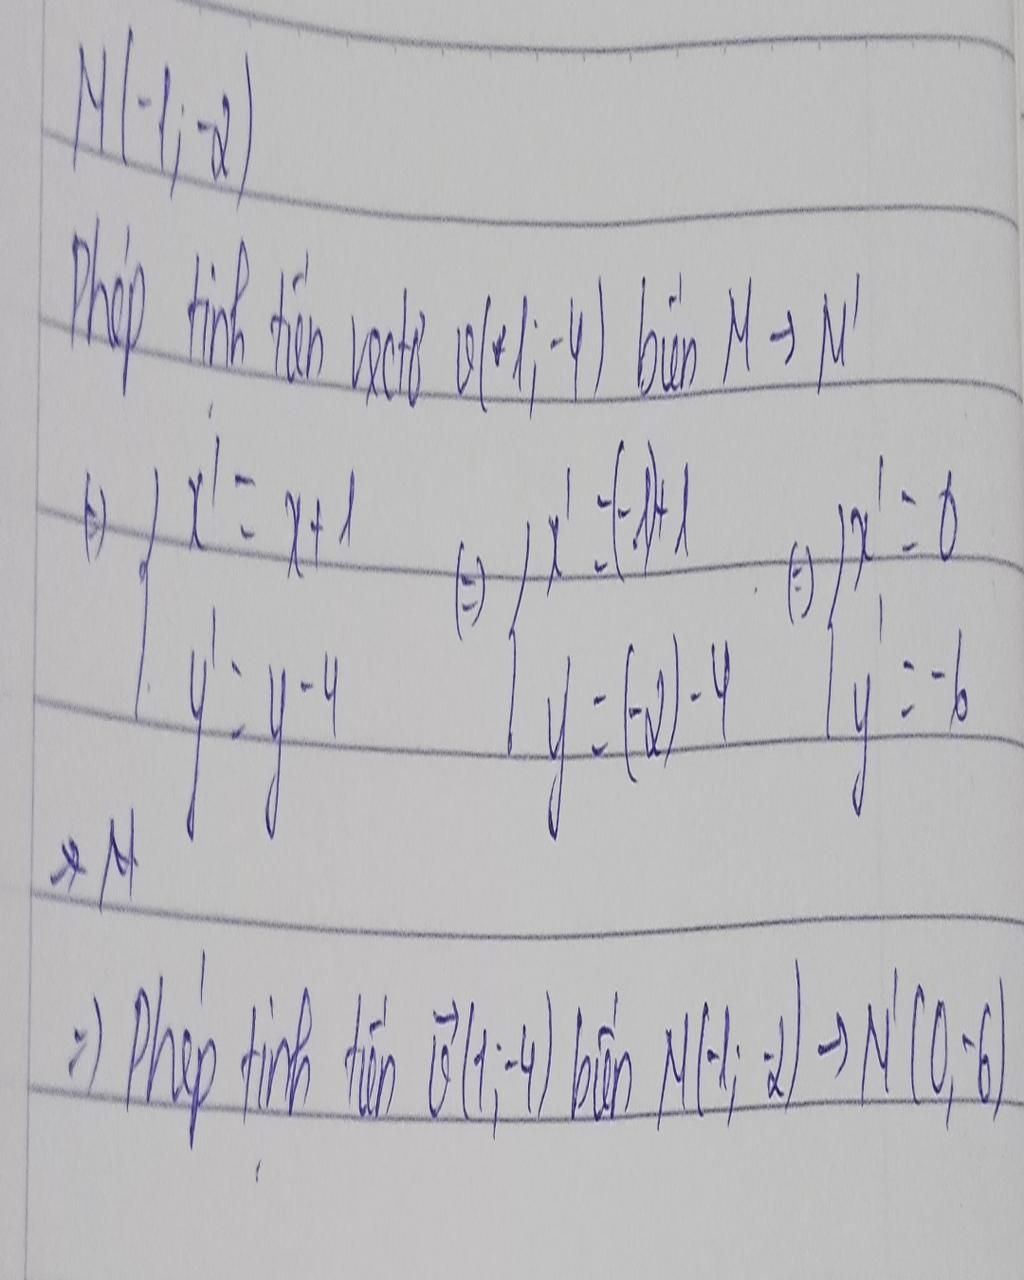 M(-1; -2)
Phép tịnh tiến vectơ v(1; -4) biến M → M'
(=) { x' = x + 1 (=) { x' = (-1) + 1 (=) { x' = 0
y' = y - 4 y = (-2) - 4 y' = -6
→ M
=) Phép tịnh tiến v⃗(1; -4) biến M(-1; -2) → M'(0; -6)